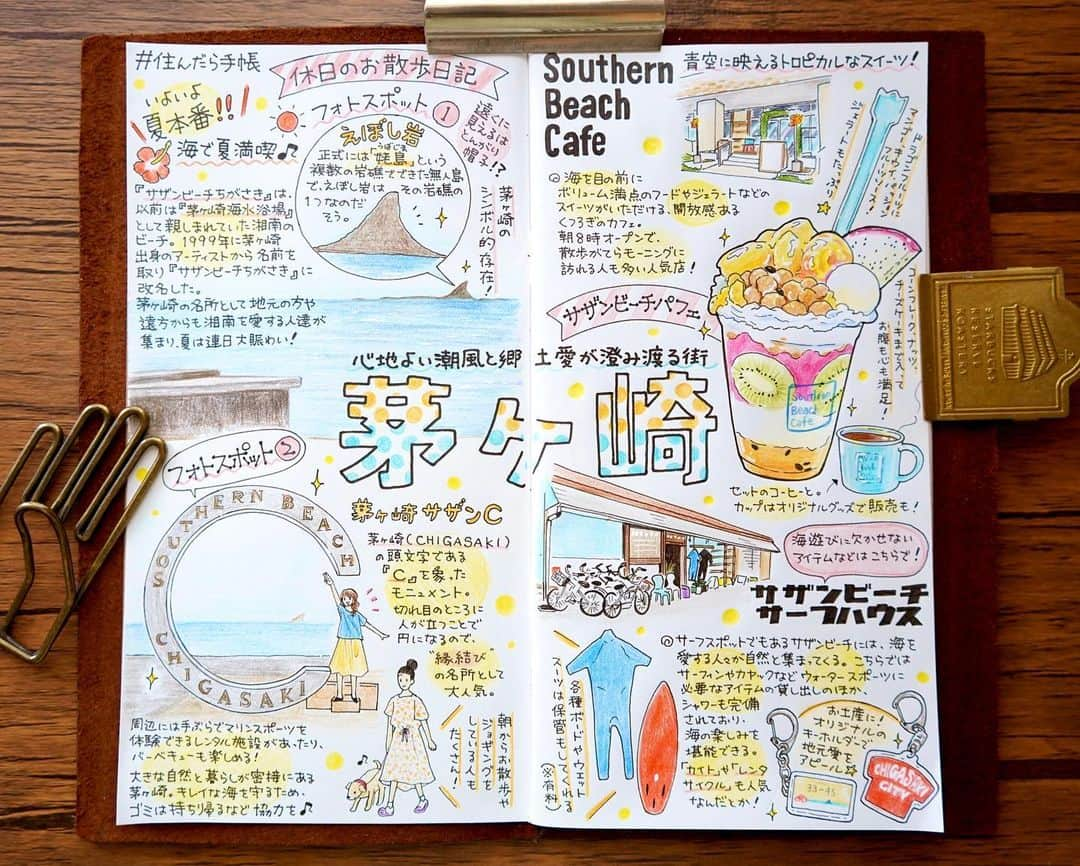 #住んだら手帳
休日のお散歩日記
いよいよ
夏本番!!
海で夏満喫♪
『サザンビーチちがさき』は、
以前は『茅ヶ崎海水浴場』
として親しまれていた湘南の
ビーチ。1999年に茅ヶ崎
出身のアーティストから名前を
取り『サザンビーチちがさき』に
改名した。
茅ヶ崎の名所として地元の方や
遠方からも湘南を愛する人達が
集まり、夏は連日大賑わい!
フォトスポット①
えぼし岩
うばじま
正式には「姥島」という
複数の岩礁でできた無人島
で、えぼし岩は その岩礁の
1つなのだ
そう。
遠くに
見えるは
とんがり
帽子!?
茅ヶ崎の
シンボル的存在!
心地よい潮風と郷土愛が澄み渡る街
茅ヶ崎
フォトスポット②
SOUTHERN BEACH
CHIGASAKI
茅ヶ崎サザンC
茅ヶ崎(CHIGASAKI)
の頭文字である
『C』を象った
モニュメント。
切れ目のところに
人が立つことで
円になるので、
"縁結び"
の名所として
大人気。
周辺には手ぶらでマリンスポーツを
体験できるレンタル施設があったり、
バーベキューも楽しめる!
大きな自然と暮らしが密接にある
茅ヶ崎。キレイな海を守るため、
ゴミは持ち帰るなど協力を♪
朝からお散歩や
ジョギングを
している人も
たくさん!
Southern
Beach
Cafe
青空に映えるトロピカルなスイーツ!
◎海を目の前に
ボリューム満点のフードやジェラートなどの
スイーツがいただける、開放感ある
くつろぎのカフェ。
朝8時オープンで、
散歩がてらモーニングに
訪れる人も多い人気店!
サザンビーチパフェ
マンゴー、ドラゴンフルーツに
キウイ、パイン…
フルーツゾーン!
ジェラートもたっぷり
コーンフレーク、ナッツ、
チーズケーキまで入って
お腹も心も満足!
Southern
Beach
Cafe
セットのコーヒーと。
カップはオリジナルグッズで販売も!
海遊びに欠かせない
アイテムなどはこちらで!
サザンビーチ
サーフハウス
◎サーフスポットでもあるサザンビーチには、海を
愛する人々が自然と集まってくる。こちらでは
サーフィンやカヤックなどウォータースポーツに
必要なアイテムの貸し出しのほか、
シャワーも完備
されており、
海の楽しみを
堪能できる。
「カイト」や「レンタ
サイクル」も人気
なんだとか!
各種ボードやウェット
スーツは保管もしてくれる
(※有料)
お土産に!
オリジナルの
キーホルダーで
地元愛を
アピール☆
33-45
CHIGASAKI
CITY